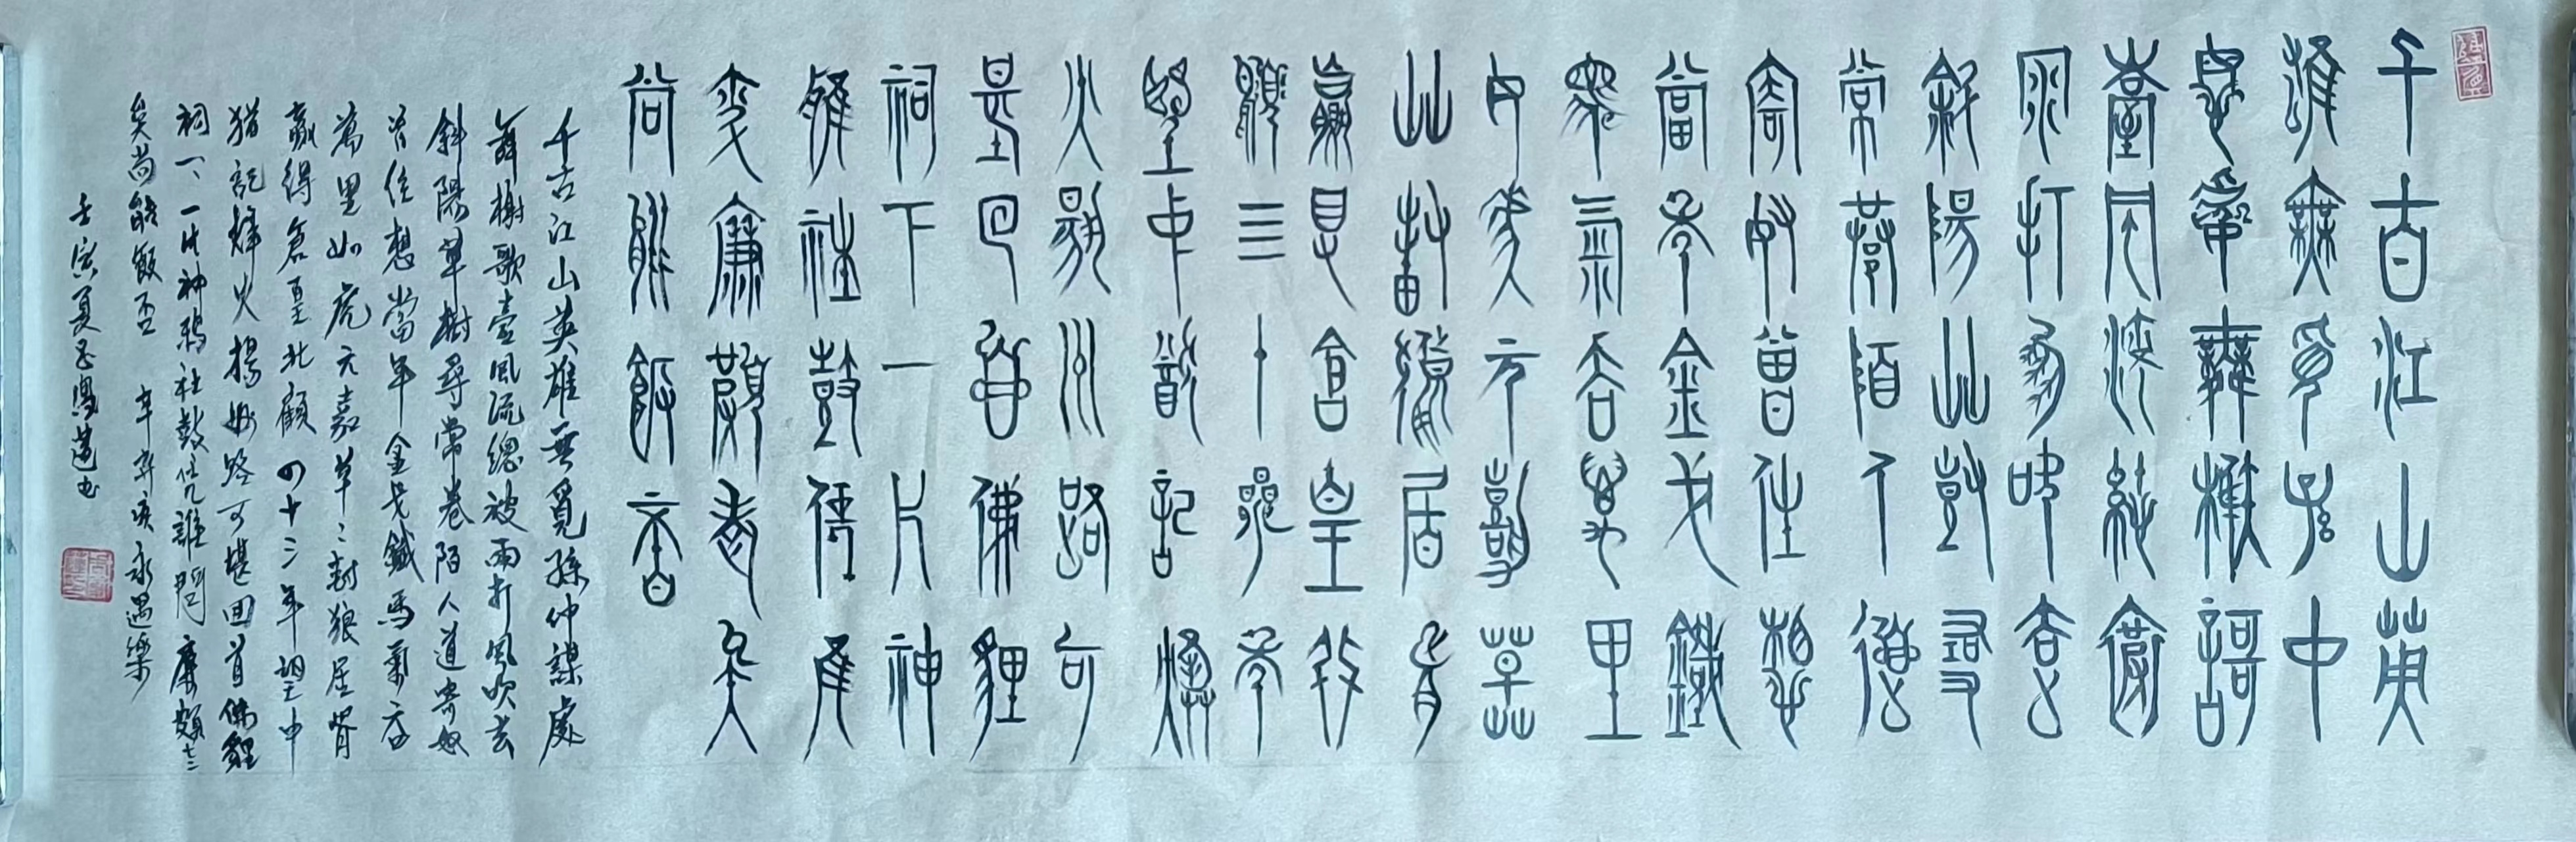 千古江山英
雄無覓孫中
謀處舞榭謌
臺風流總被
雨打風吹去
斜陽艸樹尋
常巷陌人道
寄奴曾住想
當年金戈鐵
馬氣吞萬里
如虎元嘉草
艸封狼居胥
贏得倉皇北
顧亖十參年
望中猶記烽
火揚州路可
堪回首佛貍
祠下一片神
鴉社鼓憑誰
問廉頗老矣
尚能飯否
千古江山英雄無覓孫仲謀處
舞榭歌臺風流總被雨打風吹去
斜陽草樹尋常巷陌人道寄奴
曾住想當年金戈鐵馬氣吞
萬里如虎元嘉草〻封狼居胥
贏得倉皇北顧四十三年望中
猶記烽火揚州路可堪回首佛貍
祠下一片神鴉社鼓憑誰問廉頗老
矣尚能飯否 辛棄疾永遇樂
壬寅夏書